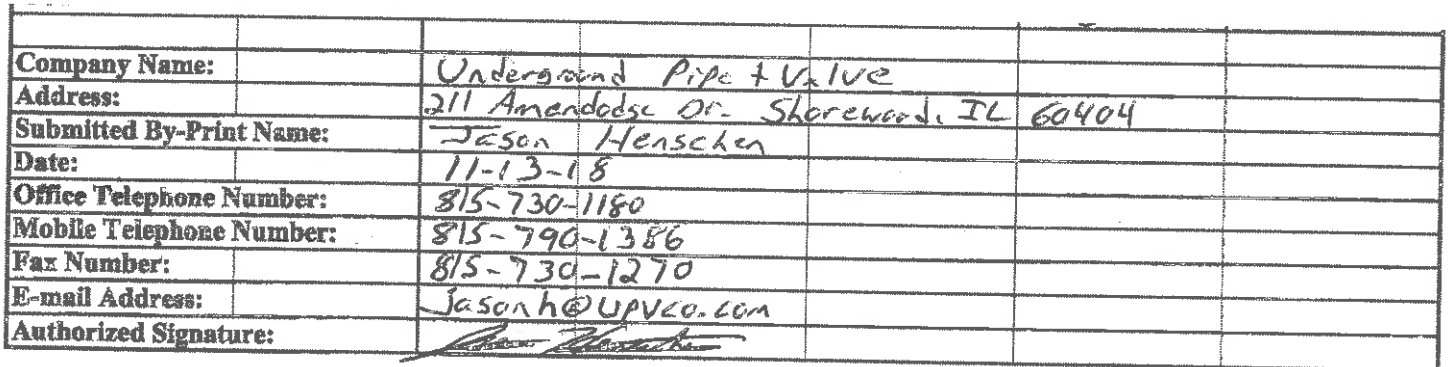 Company Name: Underground Pipe + Valve
Address: 211 Amendodge Dr. Shorewood, IL 60404
Submitted By-Print Name: Jason Henschen
Date: 11-13-18
Office Telephone Number: 815-730-1180
Mobile Telephone Number: 815-790-1386
Fax Number: 815-730-1270
E-mail Address: Jasonh@UPVCO.com
Authorized Signature: